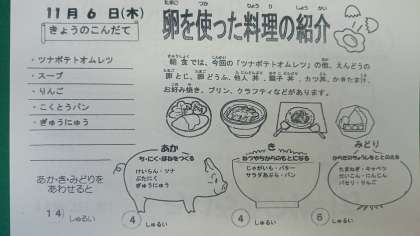 11月 6日(木)
きょうのこんだて
・ツナポテトオムレツ
・スープ
・りんご
・こくとうパン
・ぎゅうにゅう
あか・き・みどりを
あわせると
14 しゅるい
卵を使った料理の紹介
朝食では、今回の「ツナポテトオムレツ」の他、えんどうの
卵とじ、卵どうふ、他人丼、親子丼、カツ丼、かきたま汁、
お好み焼き、プリン、クラフティなどがあります。
あか
ち・にく・ほねをつくる
けいらん・ツナ
ぶたにく
ぎゅうにゅう
4 しゅるい
き
ねつやちからのもとになる
じゃがいも・バター
サラダあぶら・パン
4 しゅるい
みどり
からだのちょうしをととのえる
たまねぎ・キャベツ
だいこん・にんじん
パセリ・りんご
6 しゅるい